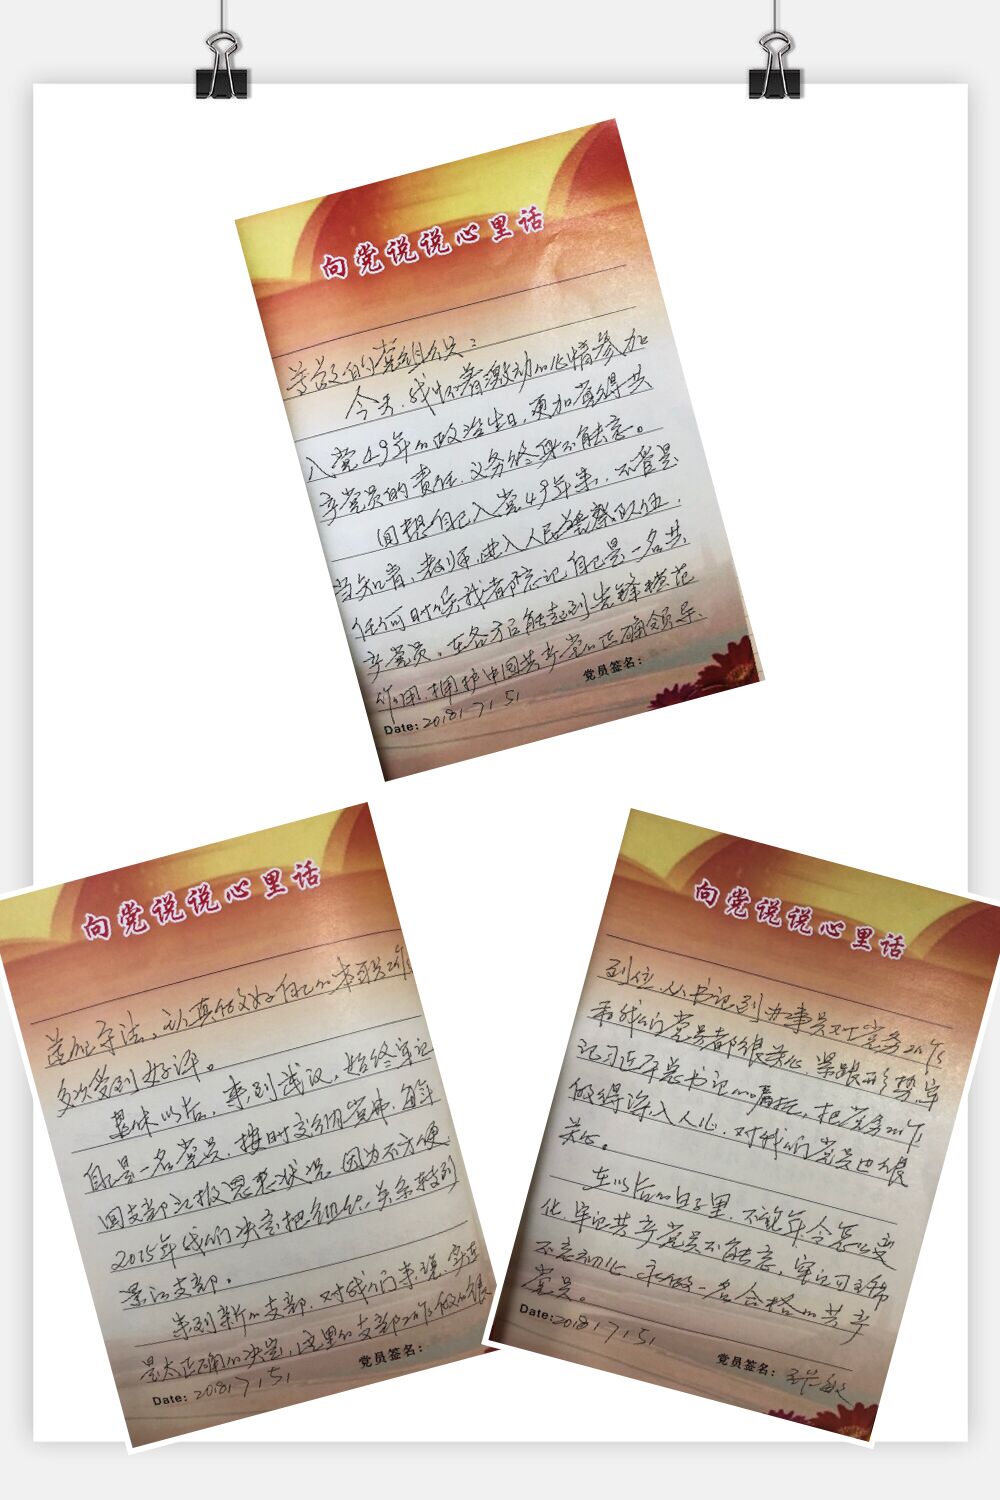 向党说说心里话
尊敬的党组织：
今天，我怀着激动的心情参加
入党49年的政治生日，更加觉得共
产党员的责任、义务终身不能忘。
回想自己入党49年来，不管是
当知青，教师，进入人民警察队伍，
任何时候我都忘记自己是一名共
产党员，在各方面能起到先锋模范
作用，拥护中国共产党的正确领导、
党员签名：
Date：2018171 51
向党说说心里话
遵纪守法，认真做好自己的本职工作
多次受到好评。
退休以后，来到武汉，始终牢记
自己是一名党员，按时交纳党费，每年
回支部汇报思想状况。因为不方便
2015年我们决定把组织关系转到
景江支部。
来到新的支部，对我们来说，实在
是太正确的决定，这里的支部工作做的很
党员签名：
Date：2018171 51
向党说说心里话
到位，从书记到办事员对党务工作
和我们党员都很关心，紧跟形势，牢
记习近平总书记的嘱托，把党务工作
做得深入人心，对我们党员也很
关心。
在以后的日子里，不论年令怎么变
化，牢记共产党员不能忘，牢记习主席
不忘初心，永做一名合格的共产
党员。
Date：2018171 51
党员签名：